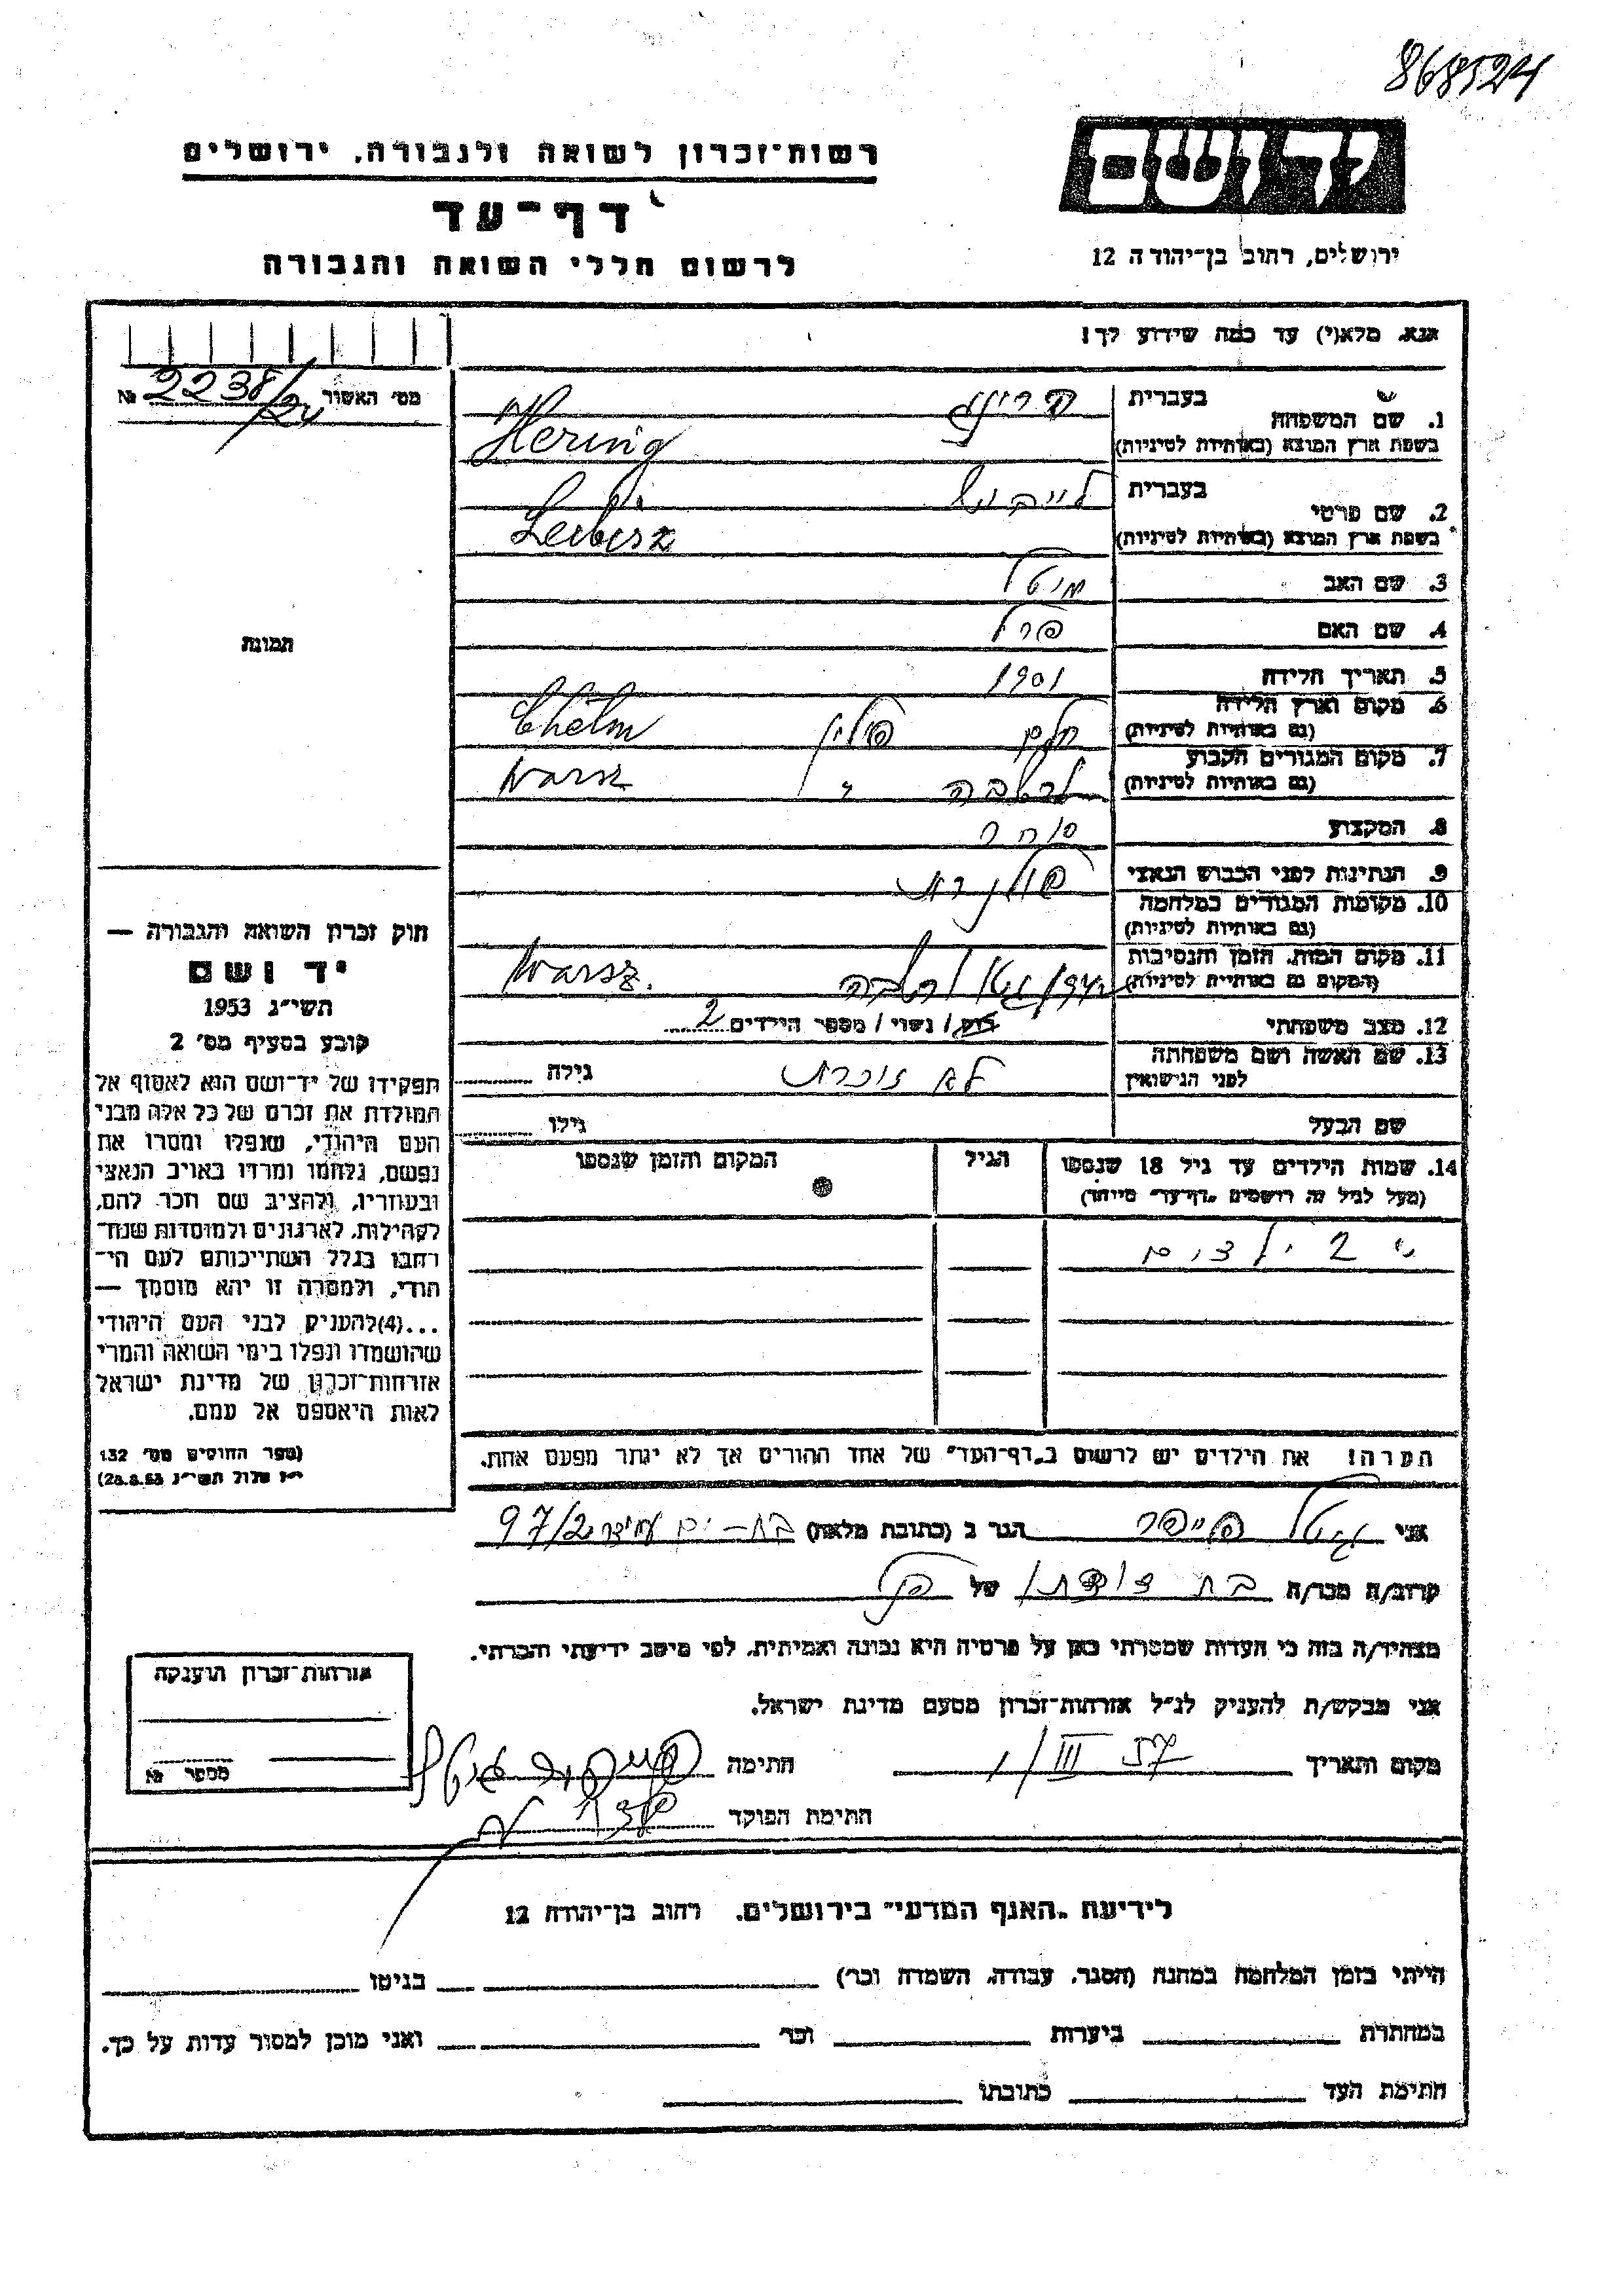 868524
יד ושם
רשות־זכרון לשואה ולגבורה, ירושלים
דף־עד
ירושלים, רחוב בן־יהודה 12
לרשום חללי השואה והגבורה
אנא, מלא(י) עד כמה שידוע לך!
מס׳ האשור 2238/24 №
1. שם המשפחה
בעברית הרינג
בשפת ארץ המוצא (באותיות לטיניות) Hering
2. שם פרטי
בעברית לייביש
בשפת ארץ המוצא (באותיות לטיניות) Leibisz
3. שם האב
4. שם האם פרל
5. תאריך הלידה 1901
6. מקום וארץ הלידה (גם באותיות לטיניות) חלם פולין Chelm
7. מקום המגורים הקבוע (גם באותיות לטיניות) ורשבה " Warsz
8. המקצוע סוחר
9. הנתינות לפני הכבוש הנאצי פולנית
10. מקומות המגורים במלחמה (גם באותיות לטיניות)
11. מקום המות, הזמן והנסיבות (המקום גם באותיות לטיניות) גטו ורשבה Warsz.
12. מצב משפחתי רווק / נשוי / מספר הילדים 2
13. שם האשה ושם משפחתה לפני הנישואין לא זוכרת גילה
שם הבעל גילו
14. שמות הילדים עד גיל 18 שנספו (מעל לגיל זה רושמים „דף־עד״ מיוחד) הגיל המקום והזמן שנספו
2 ילדים
הערה! את הילדים יש לרשום ב„דף־העד״ של אחד ההורים אך לא יותר מפעם אחת.
תמונה
חוק זכרון השואה והגבורה —
יד ושם
תשי״ג 1953
קובע בסעיף מס׳ 2
תפקידו של יד־ושם הוא לאסוף אל
המולדת את זכרם של כל אלה מבני
העם היהודי, שנפלו ומסרו את
נפשם, נלחמו ומרדו באויב הנאצי
ובעוזריו, ולהציב שם וזכר להם,
לקהילות, לארגונים ולמוסדות שנח־
רבו בגלל השתייכותם לעם הי־
הודי, ולמטרה זו יהא מוסמך —
...(4)להעניק לבני העם היהודי
שהושמדו ונפלו בימי השואה והמרי
אזרחות־זכרון של מדינת ישראל
לאות היאספם אל עמם.
(ספר החוקים מס׳ 132
י״ז אלול תשי״ג 28.8.53)
אני גיטל פייפר הגר ב (כתובת מלאה) בת-ים 97/2
קרוב/ה מכר/ה בת דודתו של הנ״ל
מצהיר/ה בזה כי העדות שמסרתי כאן על פרטיה היא נכונה ואמיתית, לפי מיטב ידיעתי והכרתי.
אני מבקש/ת להעניק לנ״ל אזרחות־זכרון מטעם מדינת ישראל.
מקום ותאריך 1/III 57 חתימה פייפר גיטל
חתימת הפוקד
אזרחות־זכרון הוענקה
מספר №
לידיעת „האגף המדעי״ בירושלים, רחוב בן־יהודה 12
הייתי בזמן המלחמה במחנה (הסגר, עבודה, השמדה וכו׳) בגיטו
במחתרת ביערות וכו׳ ואני מוכן למסור עדות על כך.
חתימת העד כתובתו